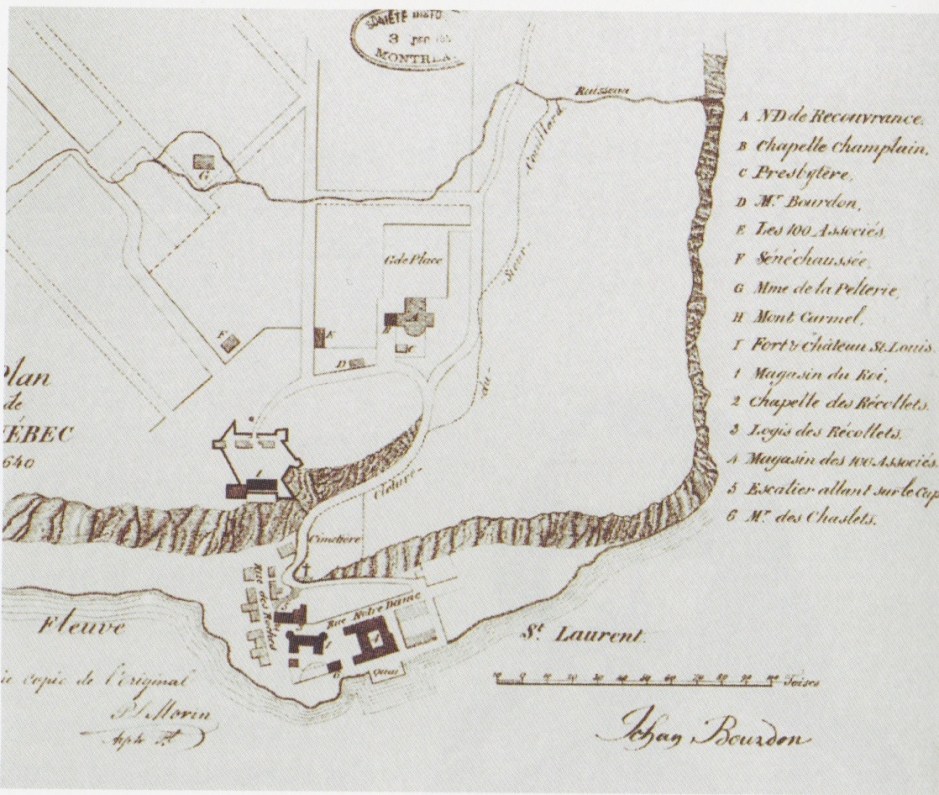 SOCIÉTÉ HISTO
3 DEC
MONTREA
Ruisseau
Couillard
Sieur
du
G
Gde Place
A
B
C
D
E
F
I
Clôture
Cimetière
Rue Notre Dame
Quai
Plan
de
QUÉBEC
1640
Fleuve
St. Laurent
copie de l'original
P.L. Morin
Toises
Jehan Bourdon
A ND de Recouvrance.
B Chapelle Champlain.
C Presbytère,
D Mr. Bourdon,
E Les 100 Associés,
F Sénéchaussée,
G Mme de la Pelterie,
H Mont Carmel,
I Fort & Château St. Louis.
1 Magasin du Roi,
2 Chapelle des Récollets.
3 Logis des Récollets,
4 Magasin des 100 Associés.
5 Escalier allant sur le Cap
6 Mr. des Chaslets.